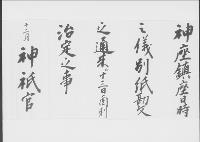 神座鎮座日時
之儀別紙勘文
之通来ル十二日卯刻
治定之事
十二月
神祇官